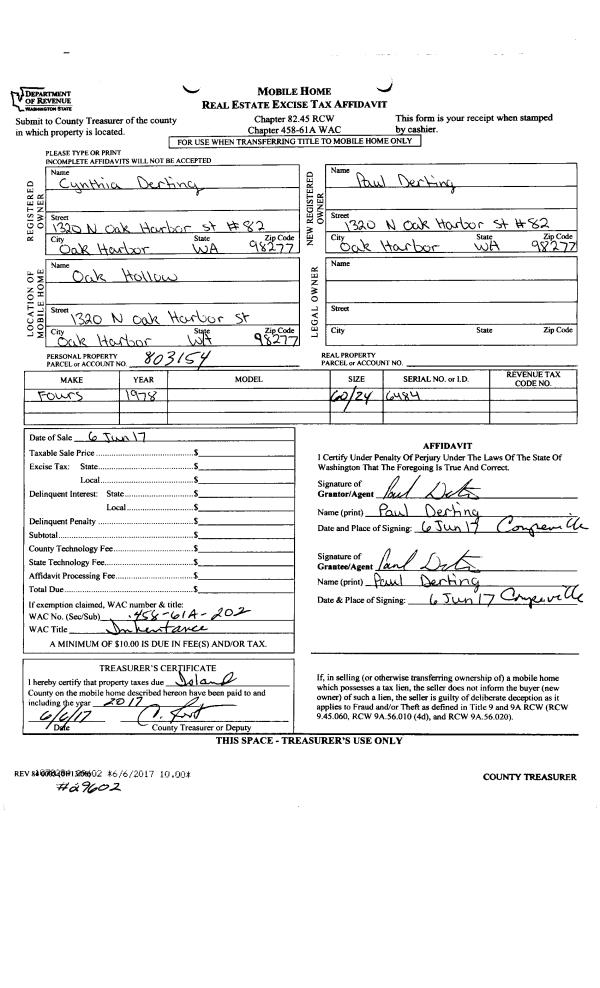 DEPARTMENT
OF REVENUE
WASHINGTON STATE
MOBILE HOME
REAL ESTATE EXCISE TAX AFFIDAVIT
Submit to County Treasurer of the county
in which property is located.
Chapter 82.45 RCW
Chapter 458-61A WAC
This form is your receipt when stamped
by cashier.
FOR USE WHEN TRANSFERRING TITLE TO MOBILE HOME ONLY
PLEASE TYPE OR PRINT
INCOMPLETE AFFIDAVITS WILL NOT BE ACCEPTED
REGISTERED OWNER
Name
Cynthia Derting
Street
1320 N Oak Harbor St #82
City State Zip Code
Oak Harbor WA 98277
NEW REGISTERED OWNER
Name
Paul Derting
Street
1320 N Oak Harbor St #82
City State Zip Code
Oak Harbor WA 98277
LOCATION OF MOBILE HOME
Name
Oak Hollow
Street
1320 N Oak Harbor St
City State Zip Code
Oak Harbor WA 98277
LEGAL OWNER
Name
Street
City State Zip Code
PERSONAL PROPERTY
PARCEL or ACCOUNT NO. 803154
REAL PROPERTY
PARCEL or ACCOUNT NO.
MAKE YEAR MODEL SIZE SERIAL NO. or I.D. REVENUE TAX CODE NO.
Fours 1978 60/24 6484
Date of Sale 6 Jun 17
Taxable Sale Price $
Excise Tax: State $
Local $
Delinquent Interest: State $
Local $
Delinquent Penalty $
Subtotal $
County Technology Fee $
State Technology Fee $
Affidavit Processing Fee $
Total Due $
If exemption claimed, WAC number & title:
WAC No. (Sec/Sub) 458-61A-202
WAC Title Inheritance
A MINIMUM OF $10.00 IS DUE IN FEE(S) AND/OR TAX.
AFFIDAVIT
I Certify Under Penalty Of Perjury Under The Laws Of The State Of
Washington That The Foregoing Is True And Correct.
Signature of
Grantor/Agent Paul Derting
Name (print) Paul Derting
Date and Place of Signing: 6 Jun 17 Coupeville
Signature of
Grantee/Agent Paul Derting
Name (print) Paul Derting
Date & Place of Signing: 6 Jun 17 Coupeville
TREASURER'S CERTIFICATE
I hereby certify that property taxes due Island
County on the mobile home described hereon have been paid to and
including the year 2017
6/6/17
Date County Treasurer or Deputy
If, in selling (or otherwise transferring ownership of) a mobile home
which possesses a tax lien, the seller does not inform the buyer (new
owner) of such a lien, the seller is guilty of deliberate deception as it
applies to Fraud and/or Theft as defined in Title 9 and 9A RCW (RCW
9.45.060, RCW 9A.56.010 (4d), and RCW 9A.56.020).
THIS SPACE - TREASURER'S USE ONLY
REV 84 *6/6/2017 10.00*
#29602
COUNTY TREASURER